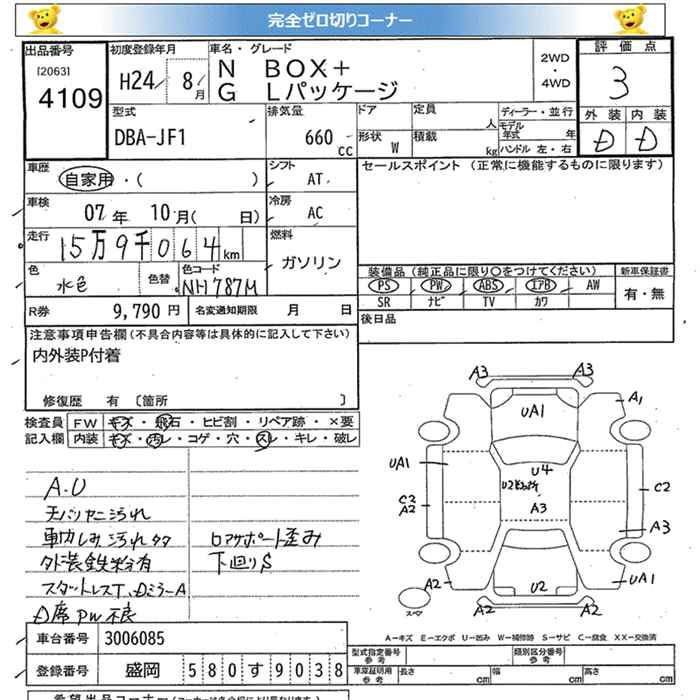 完全ゼロ切りコーナー
出品番号 初度登録年月 車名・グレード 2WD・4WD 評価点
[2063] 4109 H24/8月 N BOX+ 3
G Lパッケージ
外装 内装
D D
型式 排気量 ドア 定員 人 ディーラー・並行
DBA-JF1 660cc 形状 W 積載 kg モデル年式 年
ハンドル 左・右
車歴 自家用・( ) シフト AT セールスポイント (正常に機能するものに限ります)
車検 07年 10月( 日) 冷房 AC
走行 15万9千064km 燃料 ガソリン
色 水色 色替 色コード NH787M
装備品(純正品に限り○をつけてください) 新車保証書
PS PW ABS エアB AW 有・無
SR ナビ TV カワ
R券 9,790円 名変通知期限 月 日 後日品
注意事項申告欄(不具合内容等は具体的に記入して下さい)
内外装P付着
修復歴 有 〔箇所 〕
検査員 FW キズ・飛石・ヒビ割・リペア跡・×要
記入欄 内装 キズ・汚レ・コゲ・穴・スレ・キレ・破レ
A.U
天バリヤニ汚れ
車内しみ汚れタタ ロアサポート歪み
外装鉄粉有 下回りS
スタットレスT、DミラーA
D席PW不良
A3 A3
UA1 A1
UA1 U4
C2 A2 A3 C2
A3
A2 U2 UA1
スペア A2 A2
A－キズ E－エクボ U－凹み W－補修跡 S－サビ C－腐食 XX－交換済
車台番号 3006085
型式指定番号 参考 類別区分番号 参考
登録番号 盛岡 580す9038
車庫証明用 参考 長さ cm 幅 cm 高さ cm
希望出品コーナー